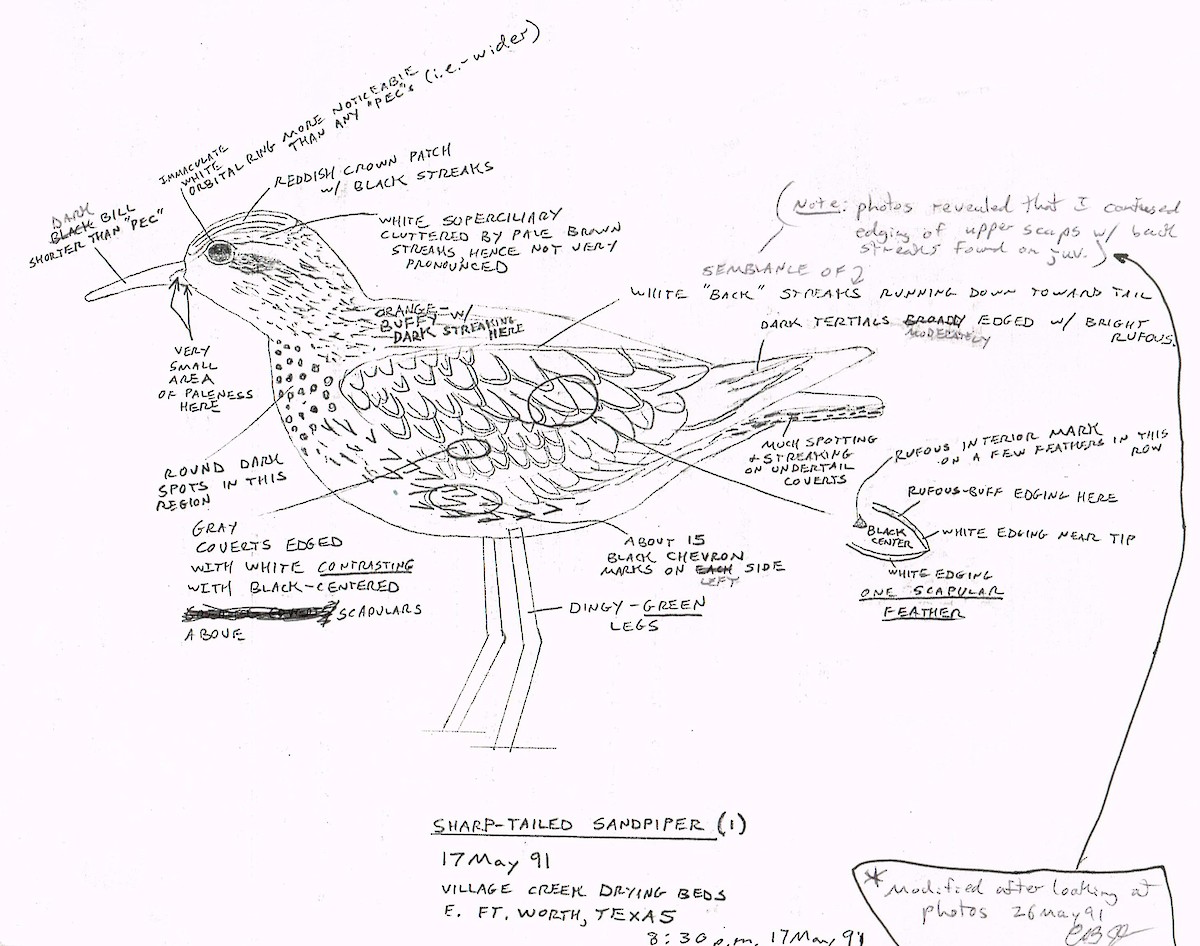 IMMACULATE
WHITE
ORBITAL RING MORE NOTICEABLE
THAN ANY "PEC"s (i.e.- wider)
REDDISH CROWN PATCH
W/ BLACK STREAKS
DARK
BLACK BILL
SHORTER THAN "PEC"
WHITE SUPERCILIARY
CLUTTERED BY PALE BROWN
STREAKS, HENCE NOT VERY
PRONOUNCED
(Note: photos revealed that I confused
edging of upper scaps w/ back
streaks found on juv.)
SEMBLANCE OF 2
WHITE "BACK" STREAKS RUNNING DOWN TOWARD TAIL
ORANGE- W/
BUFFY
DARK STREAKING
HERE
DARK TERTIALS BROADLY EDGED W/ BRIGHT
MODERATELY RUFOUS.
VERY
SMALL
AREA
OF PALENESS
HERE
ROUND DARK
SPOTS IN THIS
REGION
MUCH SPOTTING
& STREAKING
ON UNDERTAIL
COVERTS
RUFOUS INTERIOR MARK
ON A FEW FEATHERS IN THIS
ROW
RUFOUS-BUFF EDGING HERE
BLACK
CENTER
WHITE EDGING NEAR TIP
WHITE EDGING
ONE SCAPULAR
FEATHER
GRAY
COVERTS EDGED
WITH WHITE CONTRASTING
WITH BLACK-CENTERED
SCAPULARS
ABOVE
ABOUT 15
BLACK CHEVRON
MARKS ON EACH SIDE
LEFT
DINGY-GREEN
LEGS
SHARP-TAILED SANDPIPER (1)
17 May 91
VILLAGE CREEK DRYING BEDS
E. FT. WORTH, TEXAS
8:30 p.m. 17 May 91
* Modified after looking at
photos 26 May 91